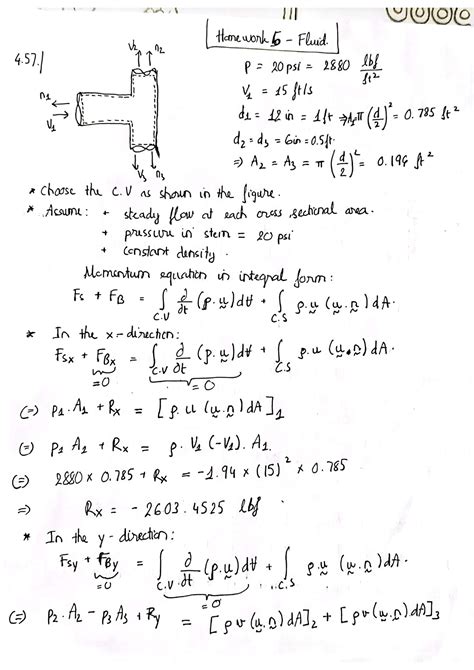 Homework 5 - Fluid.
4.57.]
V2 n2
n1
V1
V3 n3
P = 20 psi = 2880 lbf/ft²
V1 = 15 ft/s
d1 = 12 in = 1 ft ⇒ A1 = π (d/2)² = 0.785 ft²
d2 = d3 = 6 in = 0.5 ft
⇒ A2 = A3 = π (d/2)² = 0.196 ft²
* Choose the C.V as shown in the figure.
* Assume: + steady flow at each cross sectional area.
+ pressure in system = 20 psi
+ constant density.
Momentum equation in integral form:
Fs + FB = ∫C.V ∂/∂t (ρ.u) dV + ∫C.S ρ.u (u.n) dA.
* In the x-direction:
Fsx + FBx = ∫C.V ∂/∂t (ρ.u) dV + ∫C.S ρ.u (u.n) dA.
=0 =0
(=) p1.A1 + Rx = [ρ.u (u.n) dA]1
(=) p1.A1 + Rx = ρ.V1 (-V1).A1.
(=) 2880 × 0.785 + Rx = -1.94 × (15)² × 0.785
⇒ Rx = - 2603.4525 lbf
* In the y-direction:
Fsy + FBy = ∫C.V ∂/∂t (ρ.u) dV + ∫C.S ρ.u (u.n) dA.
=0 =0
(=) p2.A2 - p3 A3 + Ry = [ρv (u.n) dA]2 + [ρv (u.n) dA]3